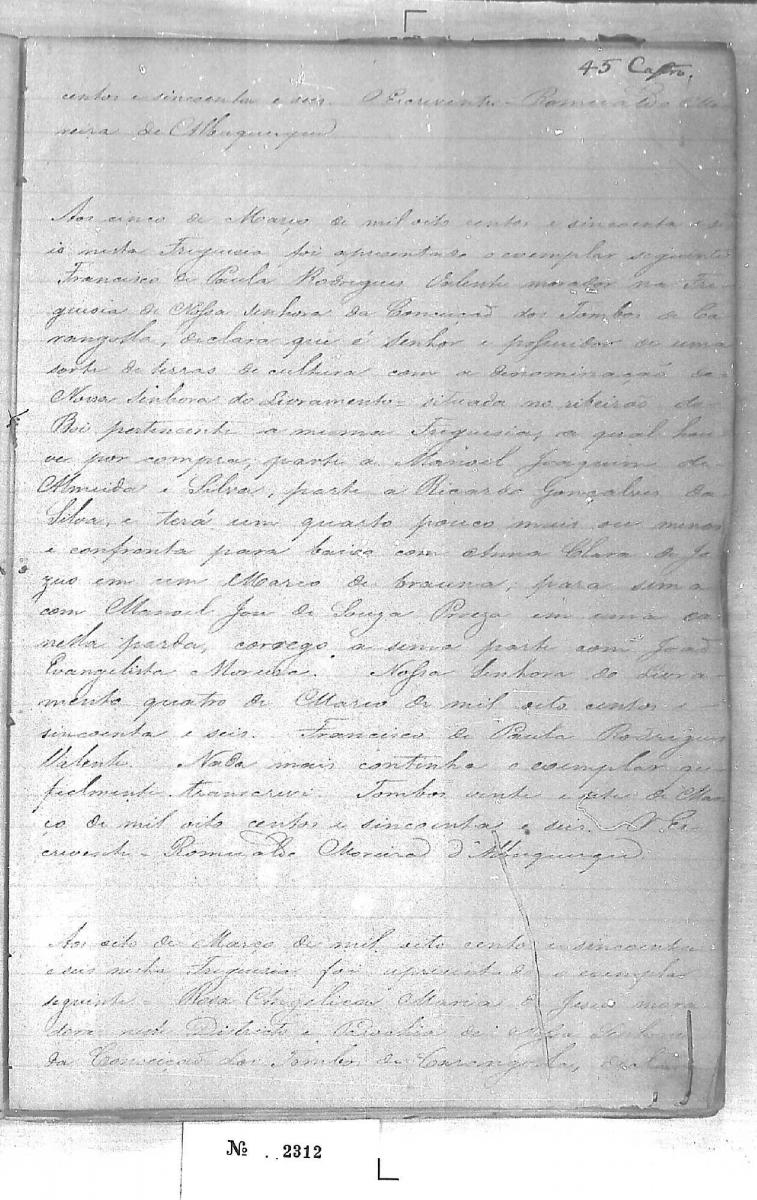 45 Castro.
centos e sincoenta e seis. O Escrevente - Romualdo Mo-
reira de Albuquerque
Aos cinco de Março de mil oito centos e sincoenta e se-
is nesta Freguesia foi apresentado o exemplar seguinte
Francisco de Paula Rodrigues Valente morador na Fre-
guesia de Nossa Senhora da Conceição dos Tombos de Ca-
rangolla, declara que é senhor e possuidor de uma
sorte de terras de cultura com a denominação de
Nossa Senhora do Livramento - situada no ribeirão do
Boi pertencente a mesma Freguesia, a qual hou-
ve por compra, parte a Manoel Joaquim de
Almeida e Silva, parte a Ricardo Gonçalves da
Silva, e terá um quarto pouco mais ou menos
e confronta para baixo com Anna Clara de Je
zus em um Marco de brauna, para sima
com Manoel José de Souza em uma ca
nella parda, corrego a sima parte com João
Evangelista Moreira. Nossa Senhora do Livra-
mento quatro de Março de mil oito centos e
sincoenta e seis. Francisco de Paula Rodrigues
Valente. Nada mais continha o exemplar que
fielmente transcrevi. Tombos vinte e sete de Mar-
ço de mil oito centos e sincoenta e seis. O Es-
crevente - Romualdo Moreira d'Albuquerque
Aos oito de Março de mil oito centos e sincoenta
e seis nesta Freguesia foi apresentado o exemplar
seguinte - Rosa Angelica Maria de Jesus mora
dora neste Districto e Parochia de Nossa Senhora
da Conceição dos Tombos de Carangolla, declara
Nº 2312